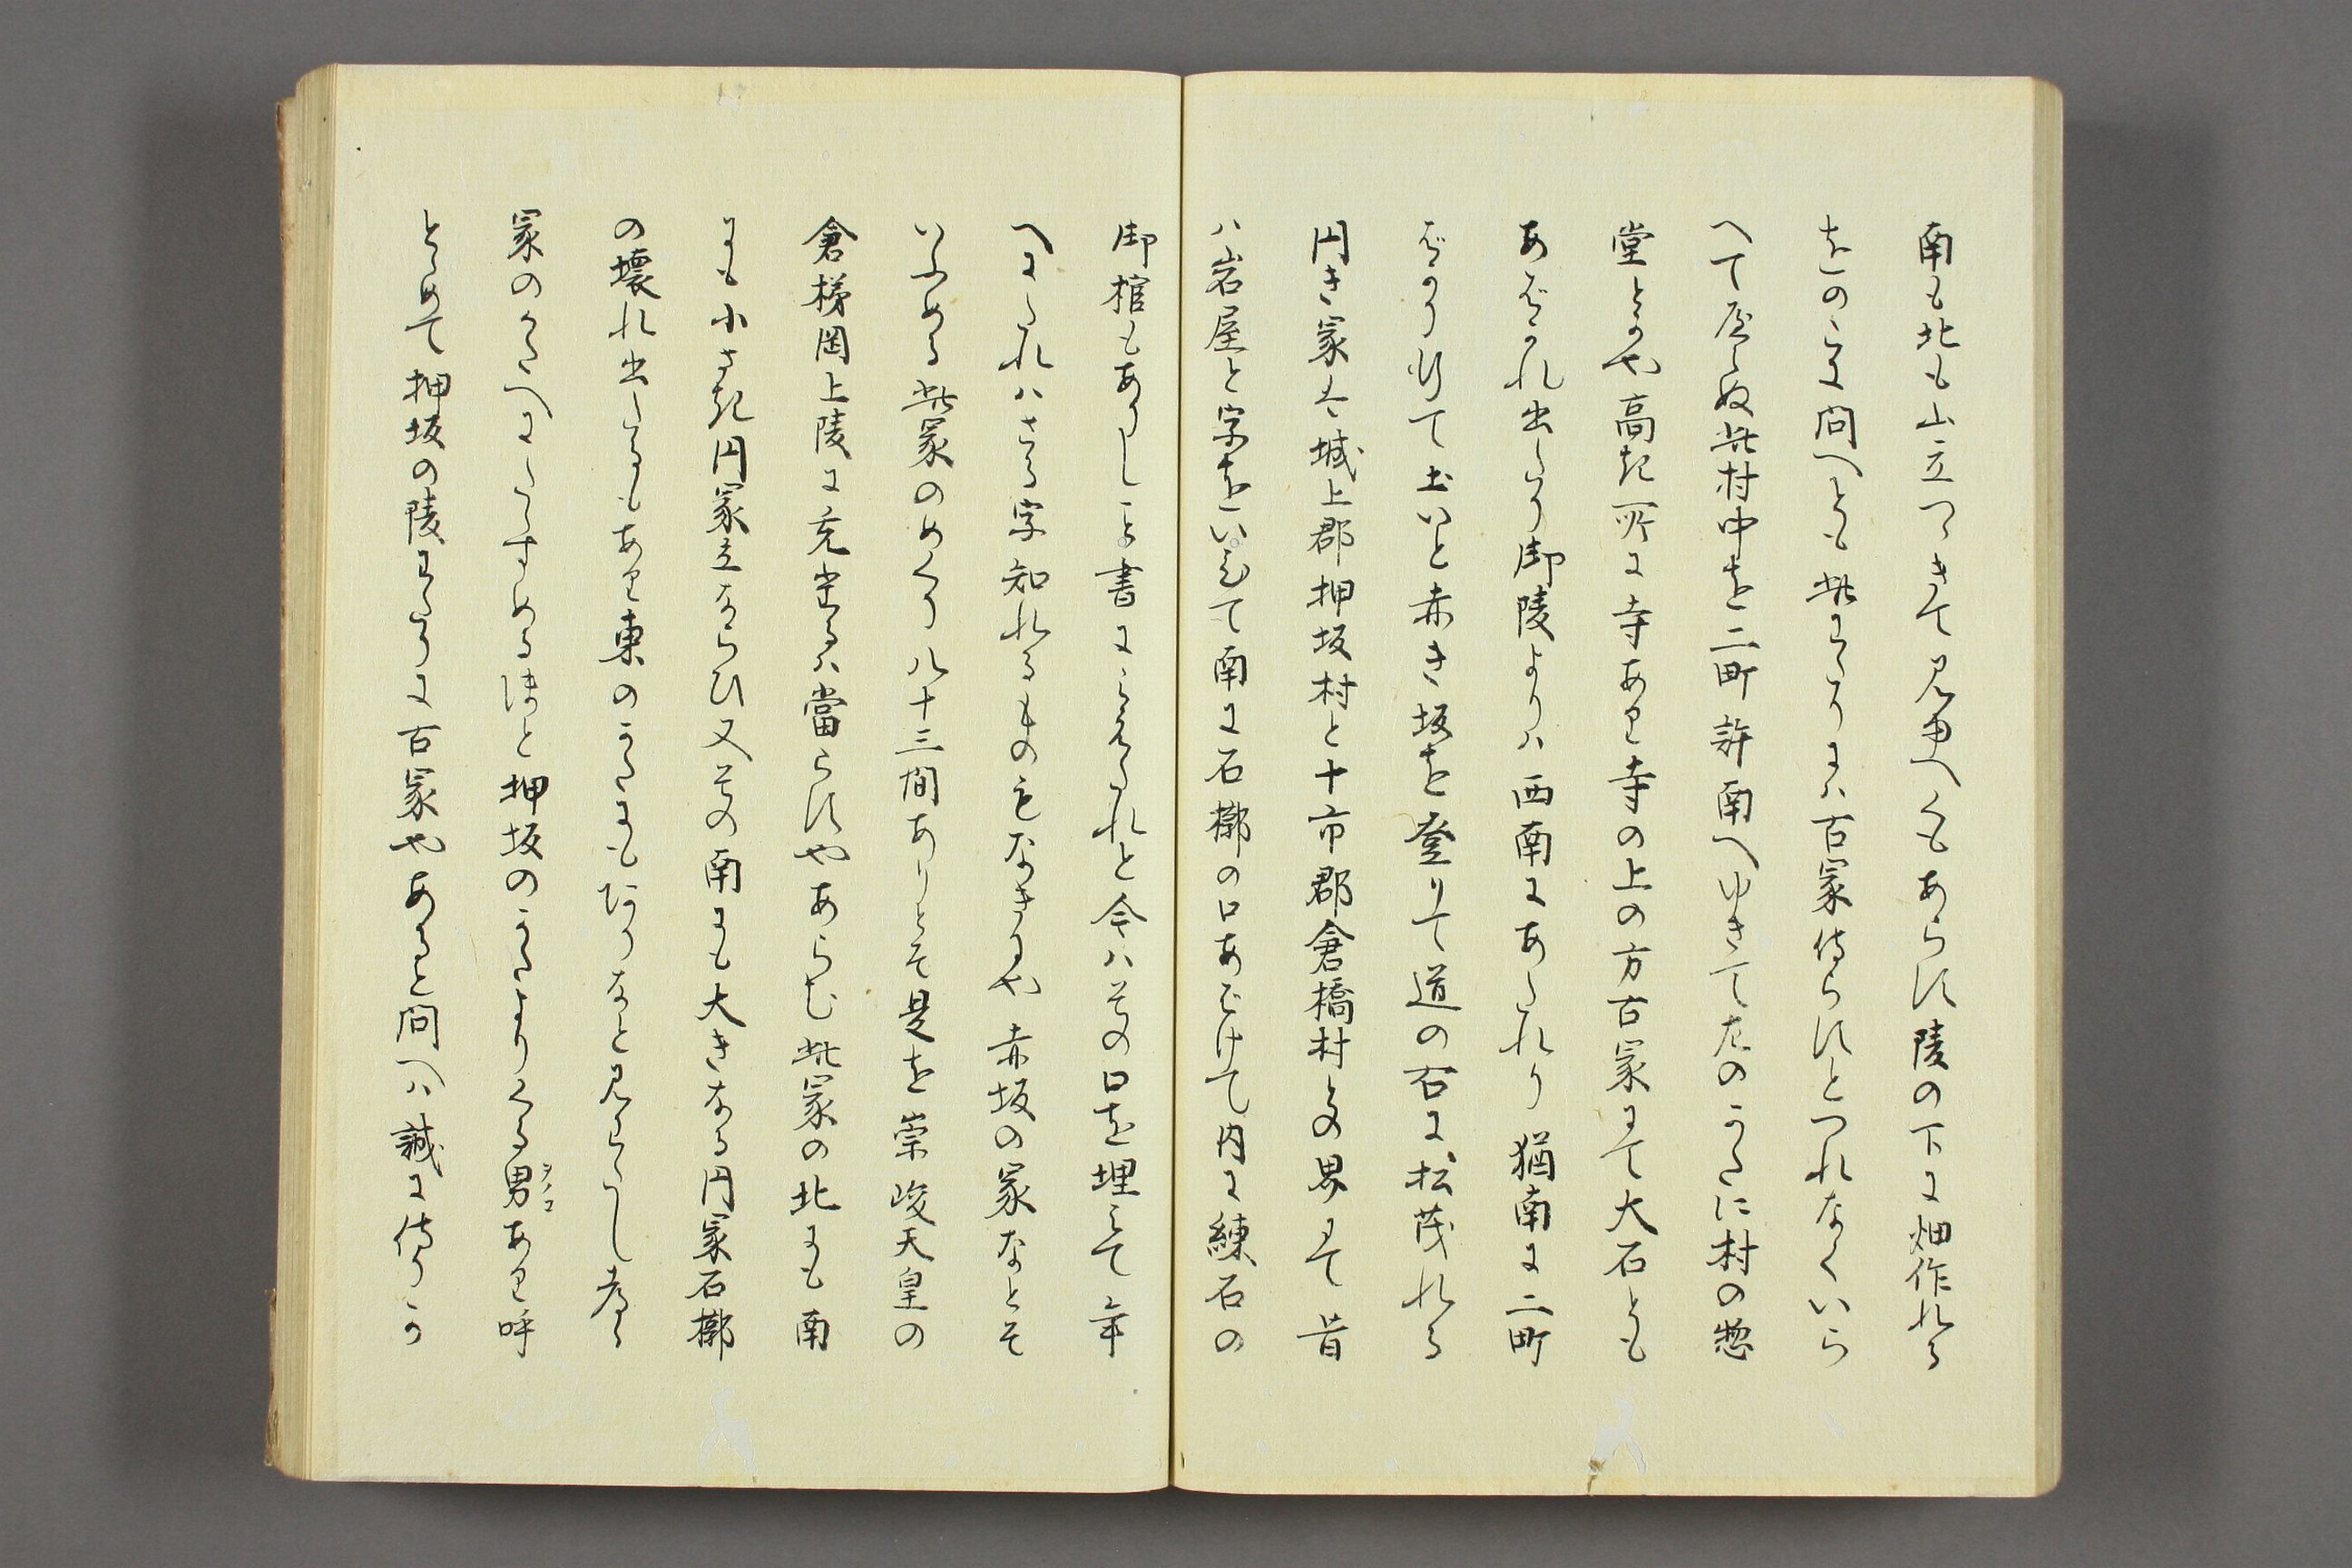 南も北も山立つゝきて見ゆへくもあらす陵の下に畑作れる
をのこに問へとも此わたりには古冢侍らすとつれなくいら
へて居らぬ此村中を二町許南へゆきて左のかたに村の惣
堂とかや高き所に寺あり寺の上の方古冢にて大石とも
あばかれ出たり御陵よりハ西南にあたれり猶南に二町
ばかり行て土いと赤き坂を登りて道の右に松茂れる
円き冢は城上郡押坂村と十市郡倉橋村との界にて昔
ハ岩屋と字をいひて南に石槨の口あばけて内に練石の
御棺もありしこと書にみえたれと今ハその口を埋みて年
へにたれハさる字知れるものもなきにや赤坂の冢なとそ
いふめる此冢のめくり八十三間ありとそ是を崇峻天皇の
倉梯岡上陵に充奉るハ當らすやあらむ此冢の北にも南
にも小さき円冢立ならひ又その南にも大きなる円冢石槨
の壊れ出たるもあり東のかたにもありなと見わたし居る
冢のかたへにたゝすめるほと押坂のかたよりくる男ヲノコあり呼
とゝめて押坂の陵わたりに古冢やあると問へハ誠に侍りか